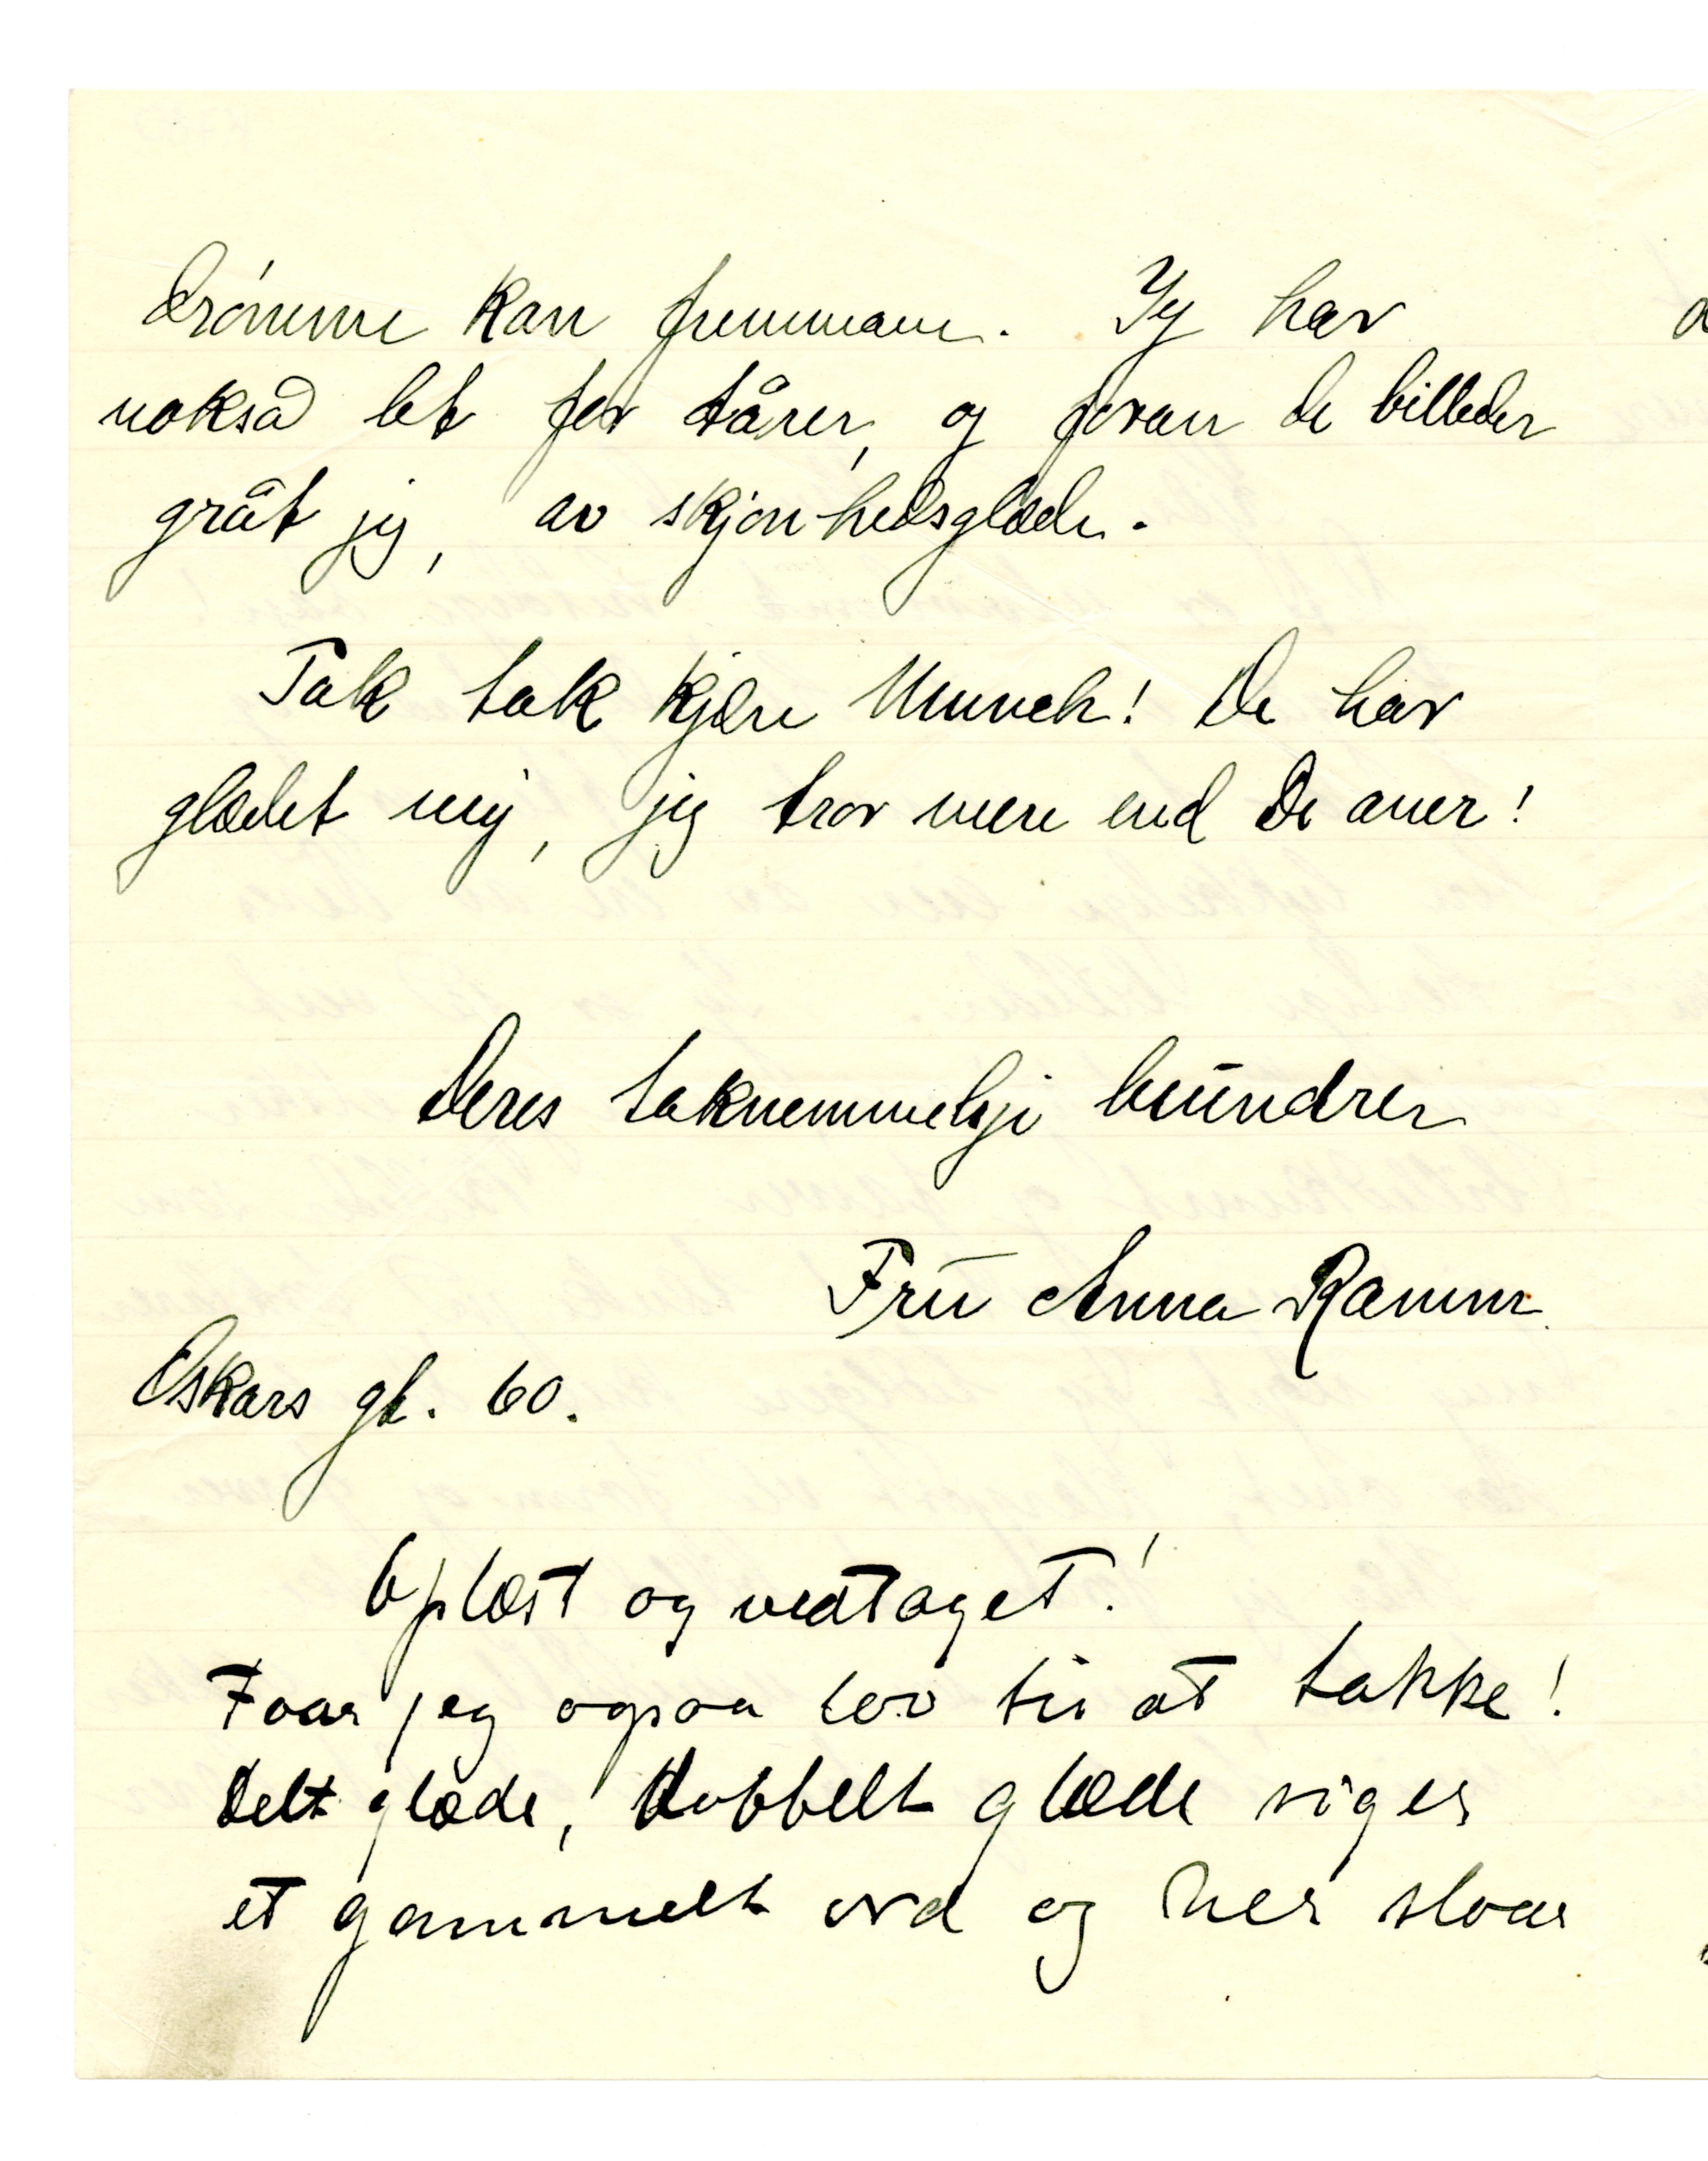 drømme kan fremmane. Jeg har
nokså let for tårer, og foran de billeder
gråt jeg, av skjønhedsglæde.
Tak tak kjære Munch! De har
glædet mig, jeg tror mere end De aner!
Deres taknemmelige beundrer
Fru Anna Ramm.
Oskars gt. 60.
Oplæst og vedtaget!
Faar jeg ogsaa lov til at takke!
Delt glæde, dobbelt glæde siger
et gammelt ord og her slaar